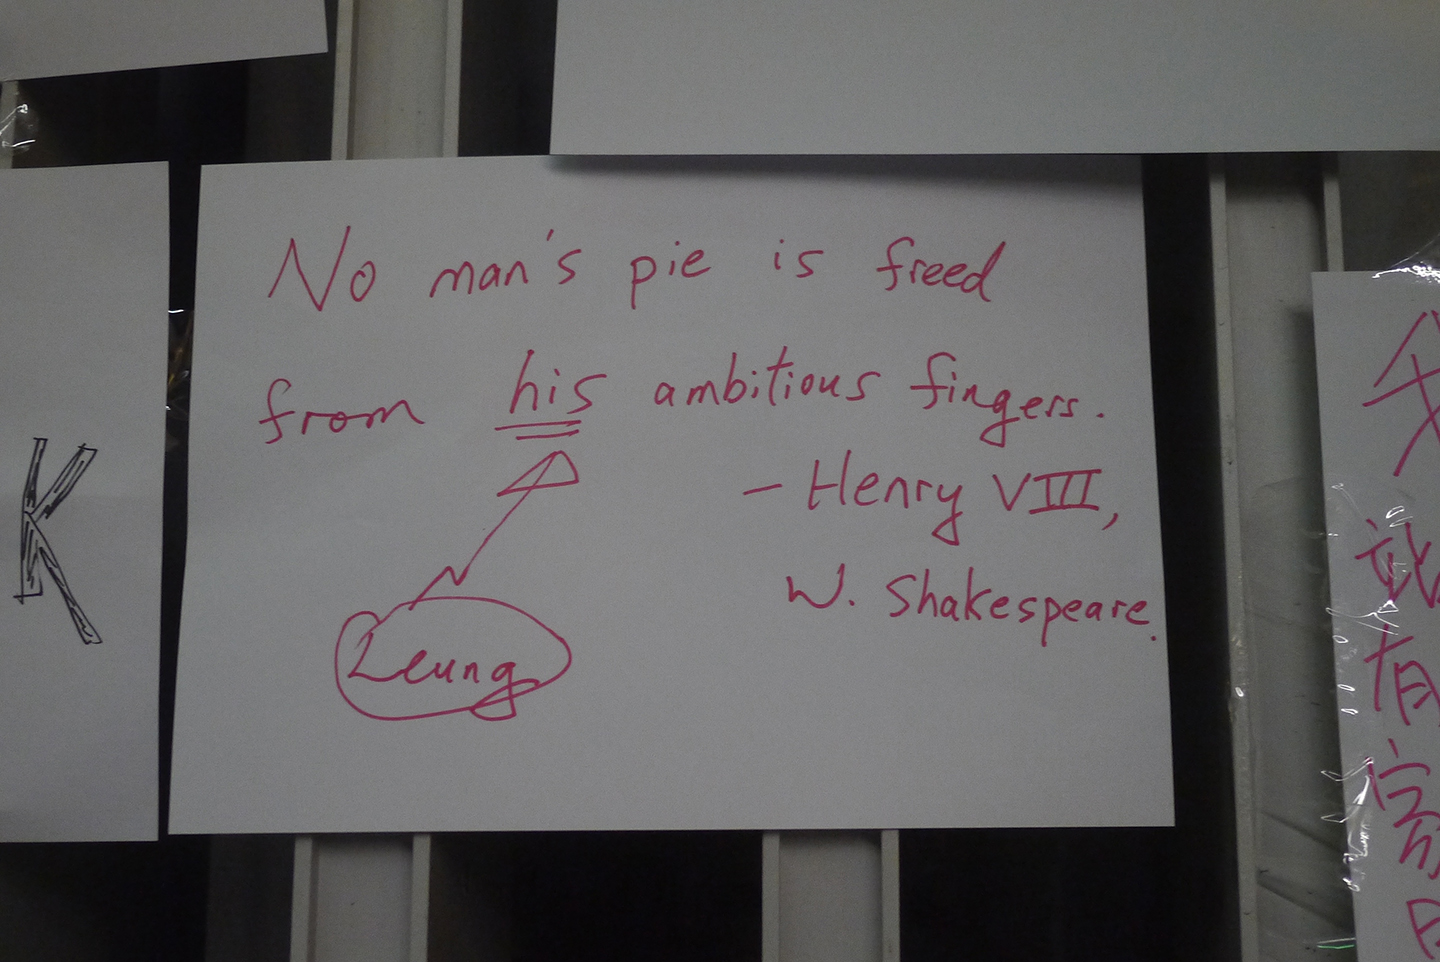 No man's pie is freed
from his ambitious fingers.
– Henry VIII,
W. Shakespeare.
Leung
K
有